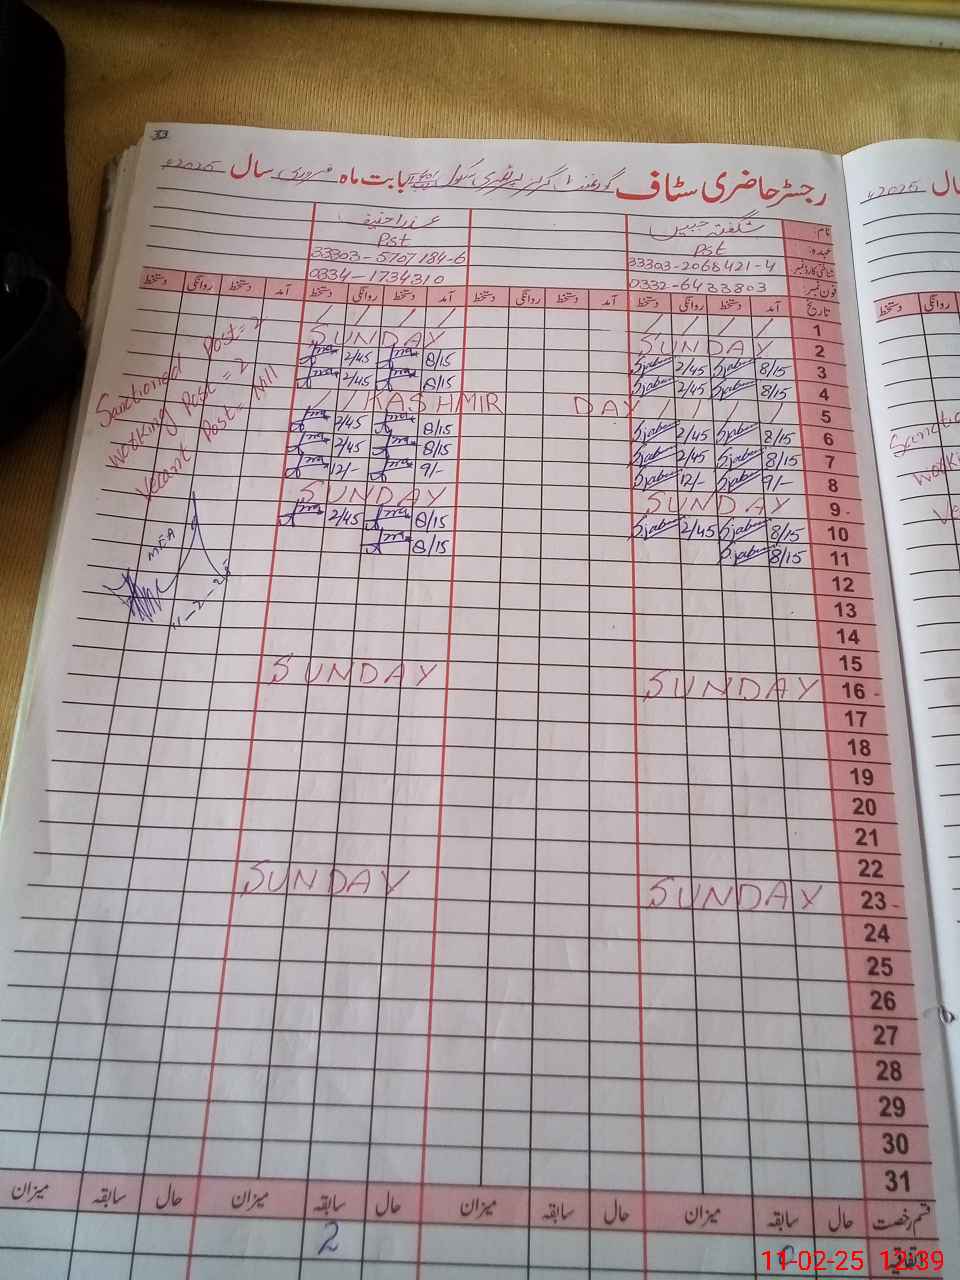 33
رجسٹر حاضری سٹاف گورنمنٹ گرلز پرائمری سکول بابت ماہ فروری سال 2025ء
نام: شگفتہ جبیں عذرا حنیف
عہدہ: Pst Pst
شناختی کارڈ نمبر 33303-2068421-4 33303-5707184-6
فون نمبر: 0332-6433803 0334-1734310
تاریخ آمد دستخط روانگی دستخط آمد دستخط روانگی دستخط آمد دستخط روانگی دستخط آمد دستخط روانگی دستخط
1 / / / / / / / /
2 SUNDAY SUNDAY
3 8/15 2/45 8/15 2/45
4 8/15 2/45 8/15 2/45
5 / / KASHMIR DAY / / / /
6 8/15 2/45 8/15 2/45
7 8/15 2/45 8/15 2/45
8 9/- 12/- 9/- 12/-
9 SUNDAY SUNDAY
10 8/15 2/45 8/15 2/45
11 8/15 8/15
12
13
14
15
16 SUNDAY SUNDAY
17
18
19
20
21
22
23 SUNDAY SUNDAY
24
25
26
27
28
29
30
31
Sanctioned Post = 2
Working Post = 2
Vecant Post = Nill
MEA
11-2-25
قسم رخصت حال سابقہ میزان حال سابقہ میزان حال سابقہ میزان حال سابقہ میزان
اتفاقیہ 2
2025ء
سال
دستخط روانگی
11-02-25 12:39